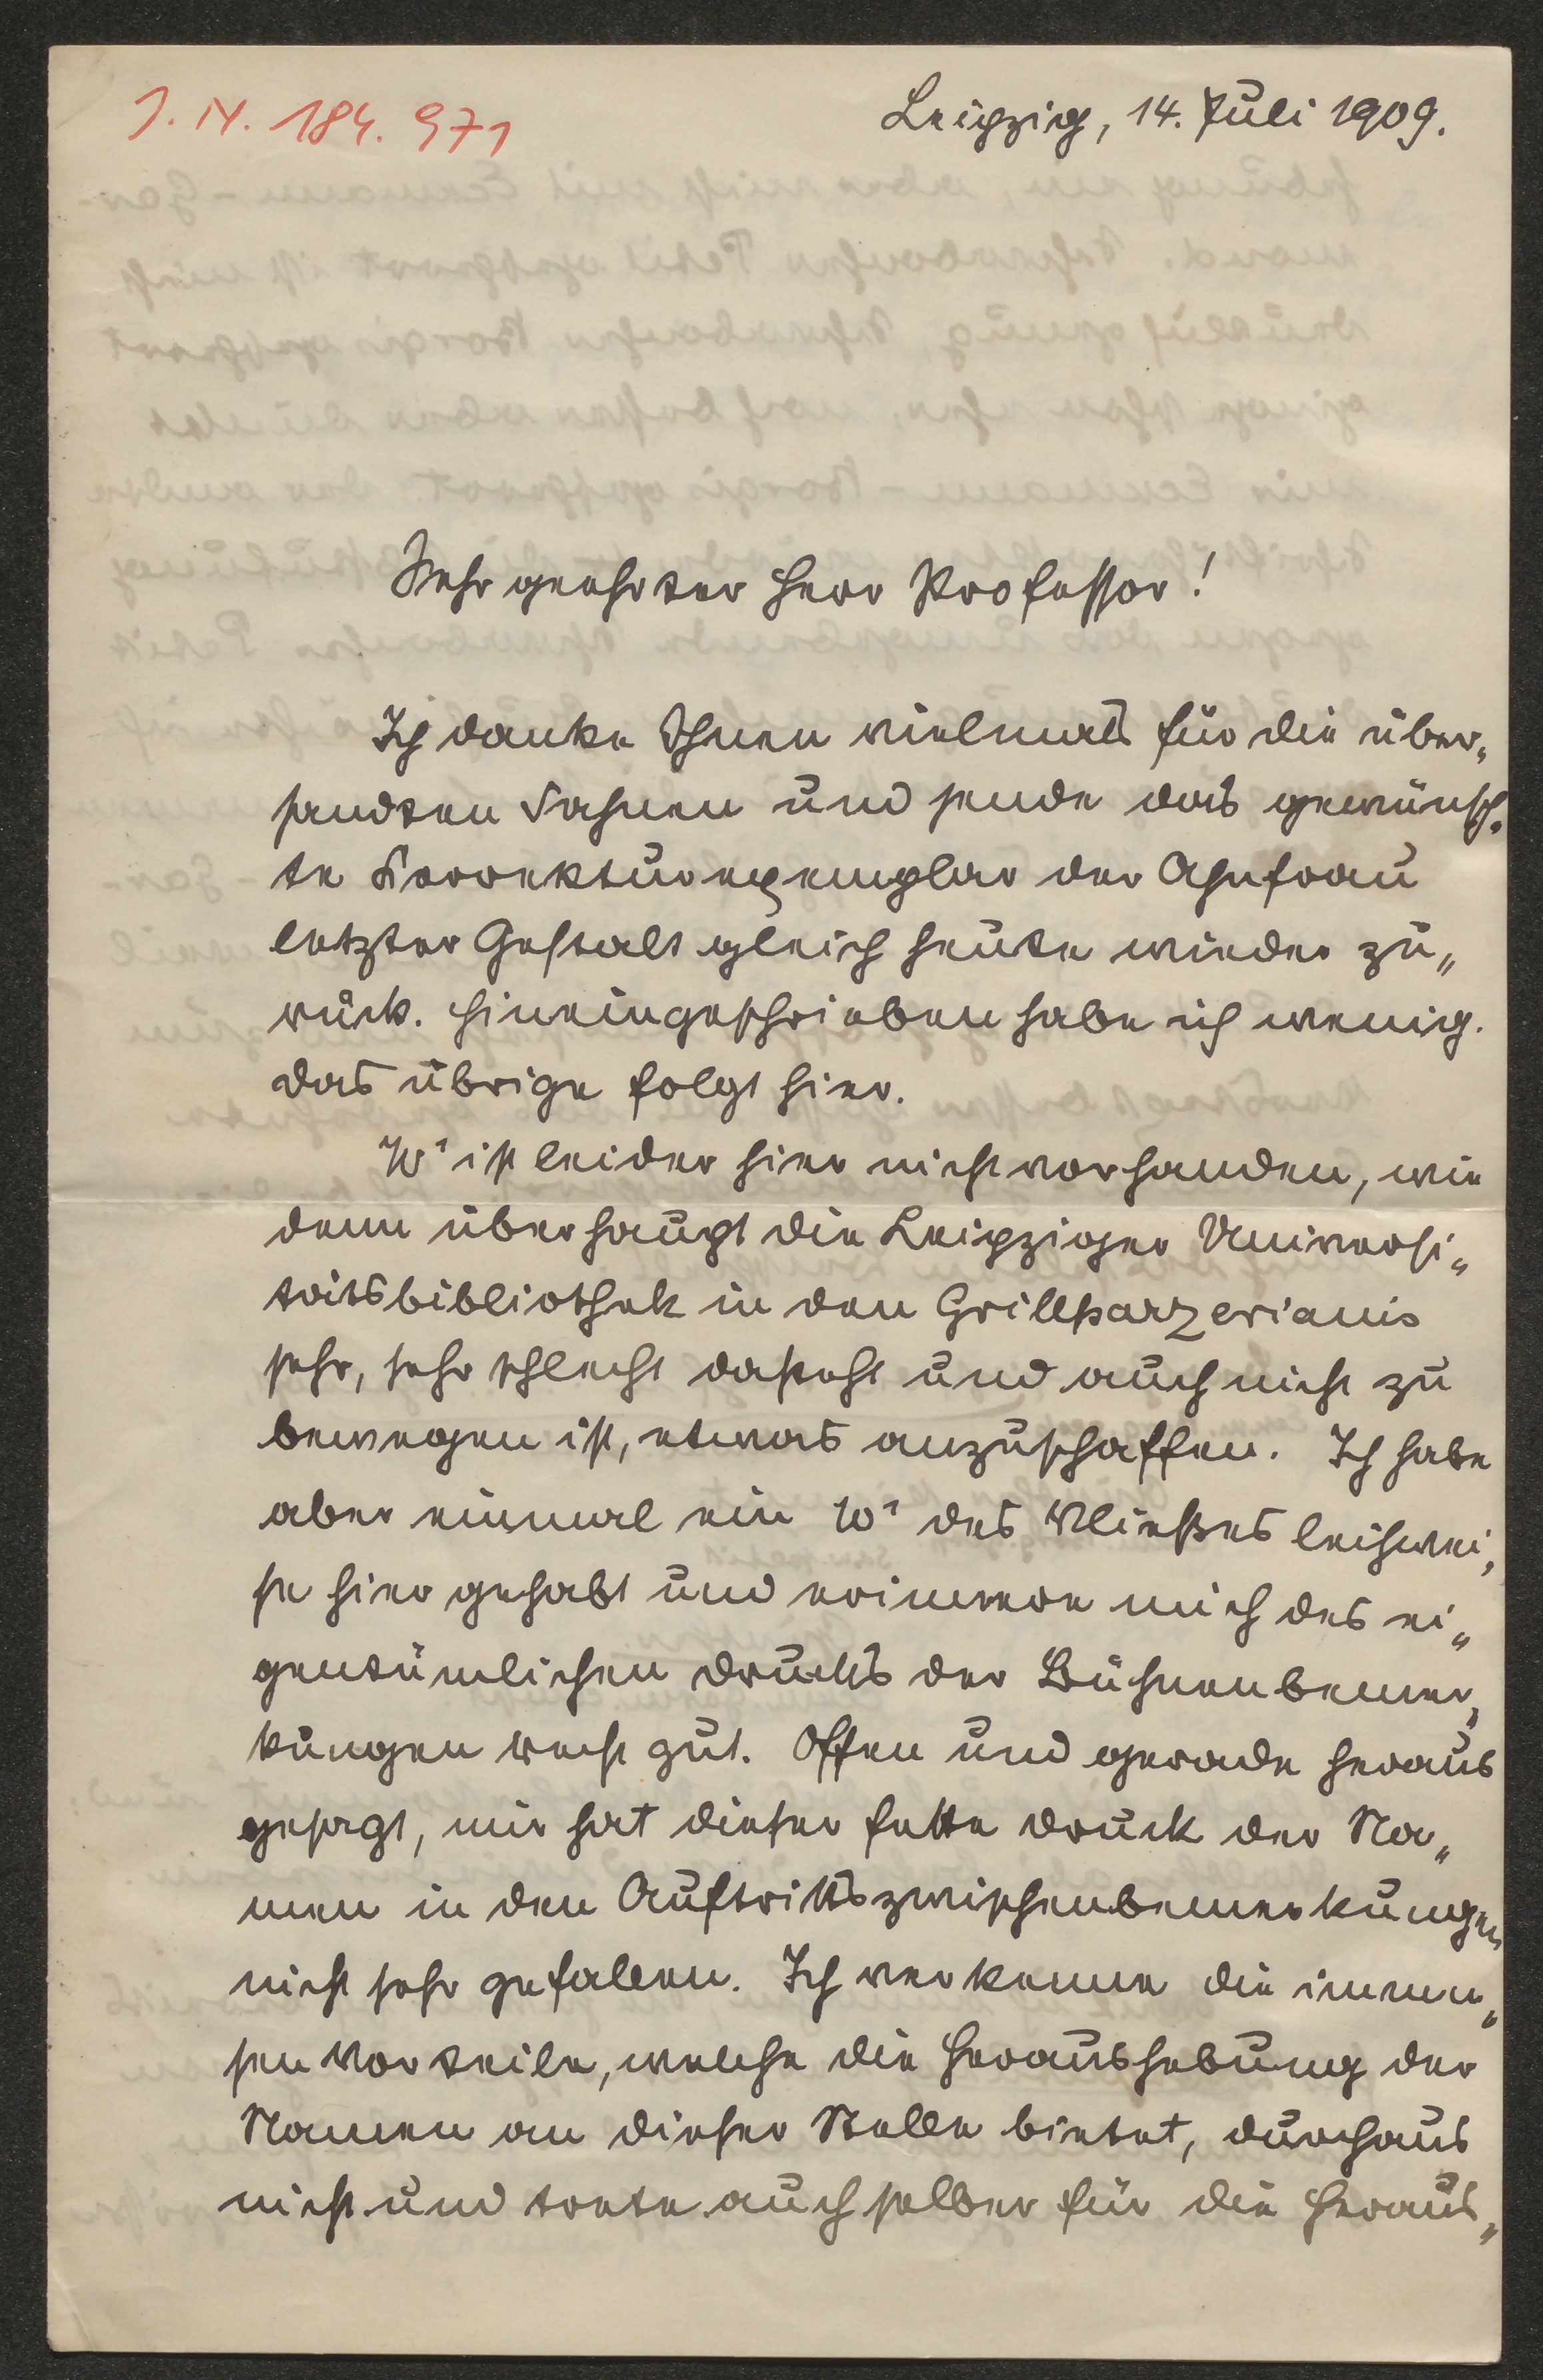 I. N. 184.971
Leipzig, 14. Juli 1909.
Sehr geehrter Herr Professor!
Ich danke Ihnen vielmals für die über„
sandten Fahnen und sende das gewünsch„
te Korrekturexemplar der Ahnfrau
letzter Gestalt gleich heute wieder zu„
rück. Hineingeschrieben habe ich wenig.
das übrige folgt hier.
W¹ ist leider hier nicht vorhanden, wie
denn überhaupt die Leipziger Universi„
tätsbibliothek in den Grillparzerianis
sehr, sehr schlecht dasteht und auch nicht zu
bewegen ist, etwas anzuschaffen. Ich habe
aber einmal ein W¹ des Vließes leihwei„
se hier gehabt und erinnere mich des ei„
gentümlichen Drucks der Bühnenbemer„
kungen recht gut. Offen und gerade heraus
gesagt, mir hat dieser fette Druck der Na„
men in den Auftrittszwischenbemerkungen
nicht sehr gefallen. Ich verkenne die immen„
sen Vorteile, welche die Heraushebung der
Namen an dieser Stelle bietet, durchaus
nicht und trete auch selber für die Heraus„